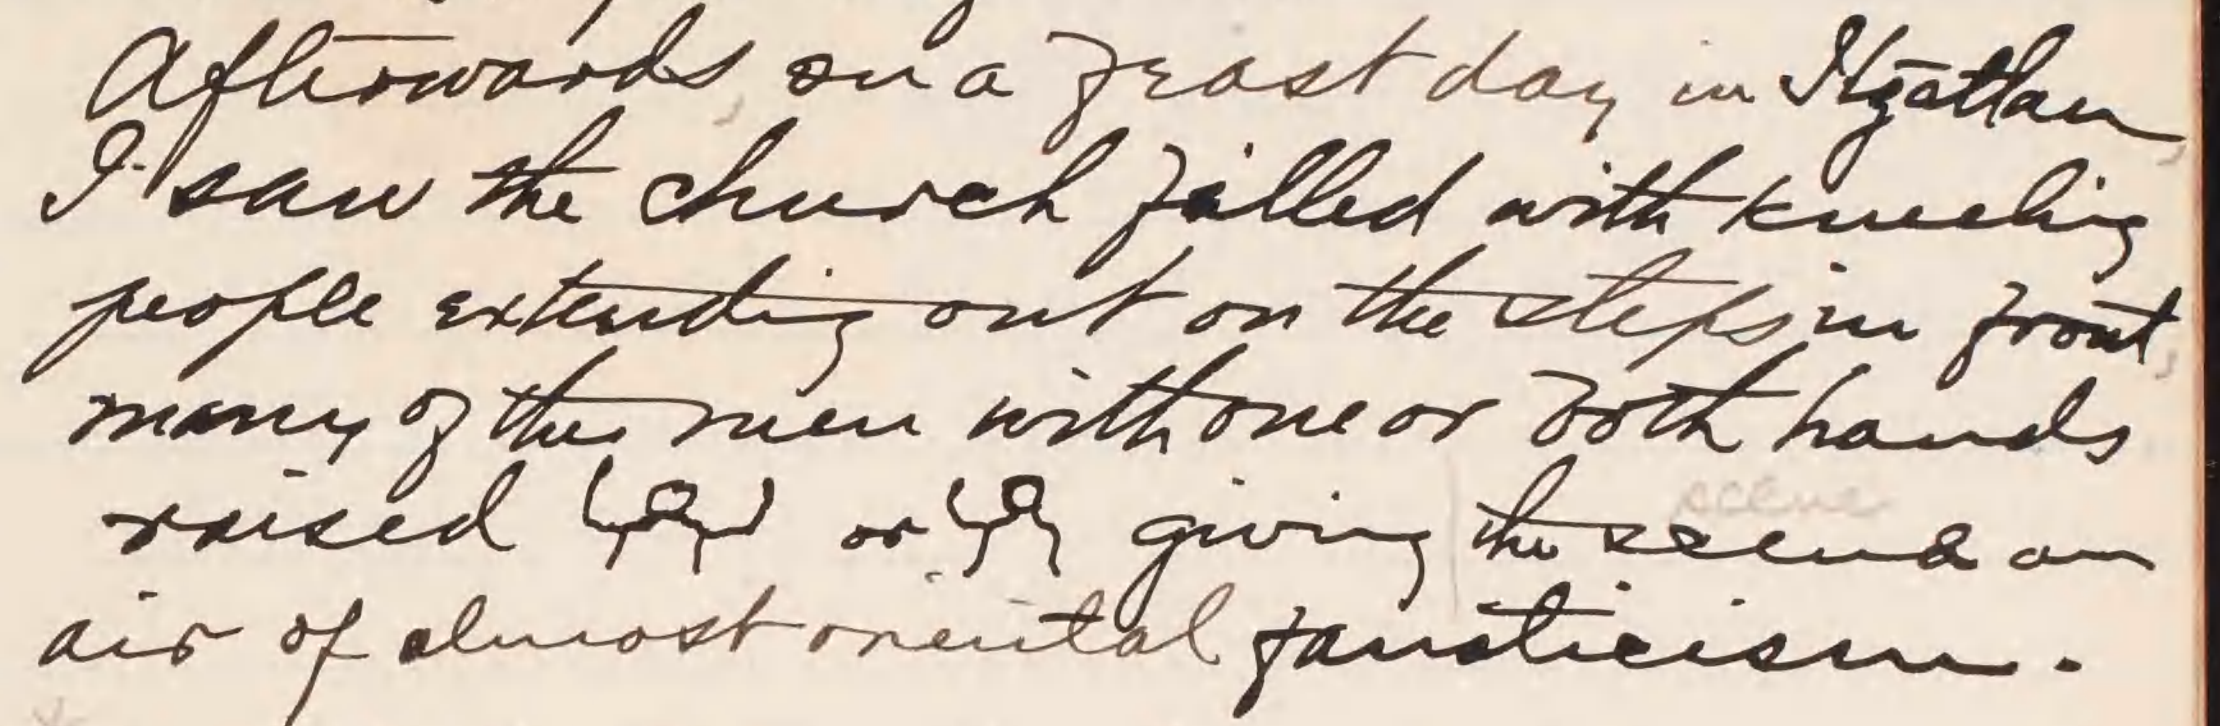 Afterwards, on a feast day in Itzatlan,
I saw the church filled with kneeling
people extending out on the steps in front,
many of the men with one or both hands
raised or giving the scene an
scene
air of almost oriental fanaticism.